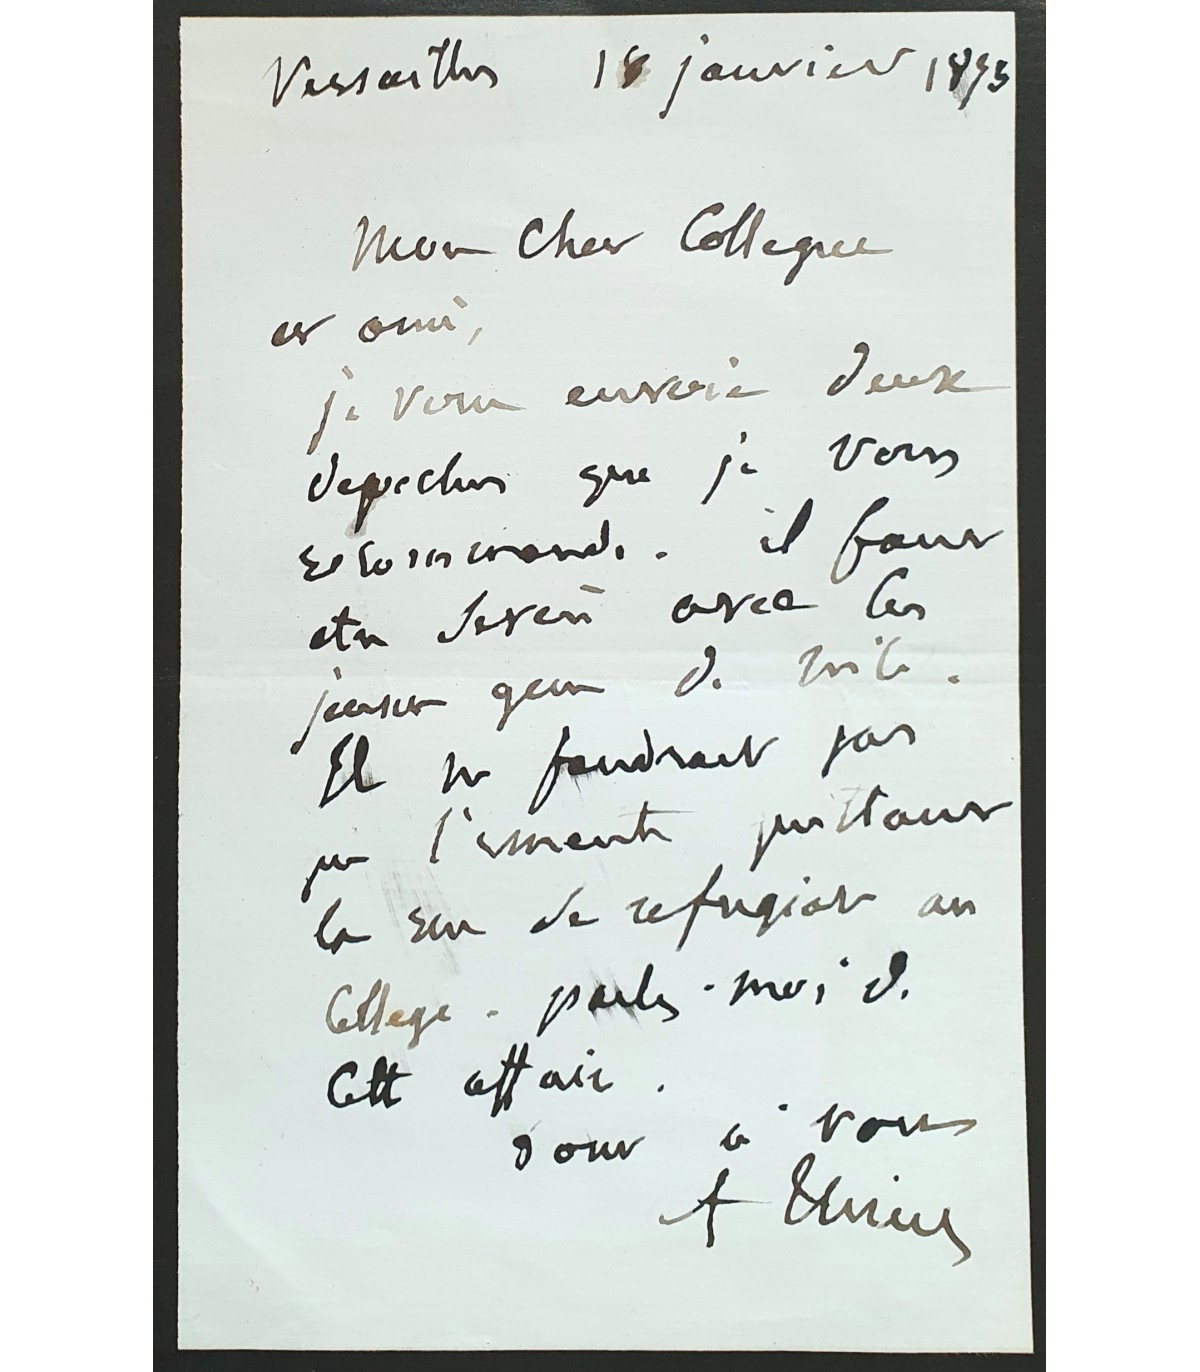 Versailles 18 janvier 1873
Mon Cher Collegue
et ami,
je vous envoie deux
depeches que je vous
recommande. il faut
etre severe avec les
jeunes gens de
Il ne faudrait pas
que l'emeute partout
de refugiat au
College. parlez-moi de
Cette affaire.
Tout à vous
A Thiers